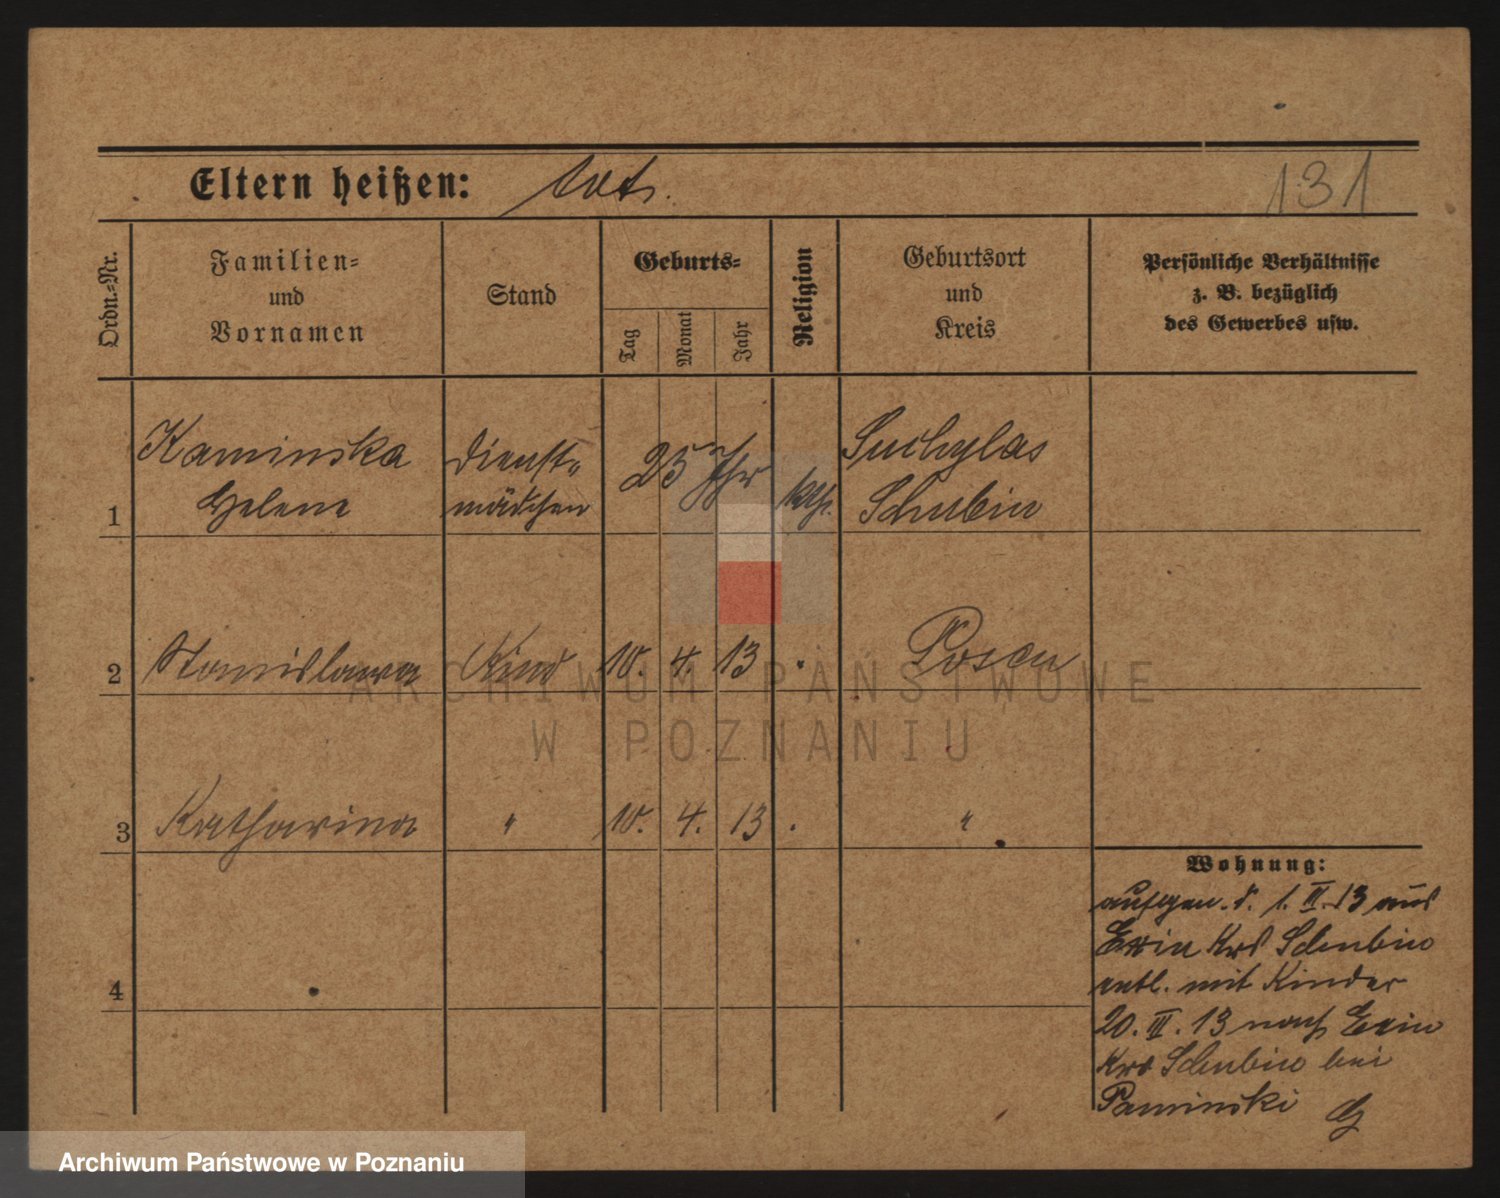 Eltern heißen: tot.
131
Ordn.-Nr.
Familien-
und
Vornamen
Stand
Geburts-
Tag
Monat
Jahr
Religion
Geburtsort
und
Kreis
Persönliche Verhältnisse
z. B. bezüglich
des Gewerbes usw.
1
Kaminska
Helene
Dienst-
mädchen
25 Jhr
kth.
Suchylas
Schubin
2
Stanislawa
Kind
10. 4. 13
Posen
3
Katharina
"
10. 4. 13
"
4
Wohnung:
aufgen. d. 1. III. 13 aus
Exin Krs Schubin
entl. mit Kinder
20. III. 13 nach Exin
Krs Schubin bei
Paminski
ARCHIWUM PAŃSTWOWE
W POZNANIU
Archiwum Państwowe w Poznaniu